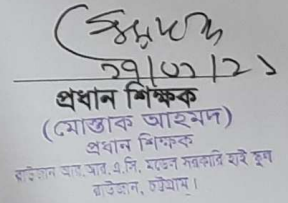 ২৭/০১/২১
প্রধান শিক্ষক
(মোস্তাক আহমদ)
প্রধান শিক্ষক
রাউজান আর.আর.এ.সি. মডেল সরকারি হাই স্কুল
রাউজান, চট্টগ্রাম।